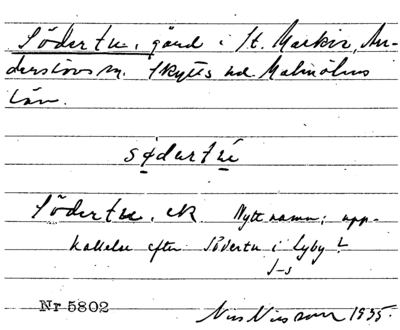 Södertu, gård i St. Markie, An-
derslövs sn. Skytts hd. Malmöhus
län.
södartú
Södertu, ek Nytt namn; upp-
kallelse efter Södertu i Lyby?
J-s
Nr 5802
Nils Nilsson 1935.